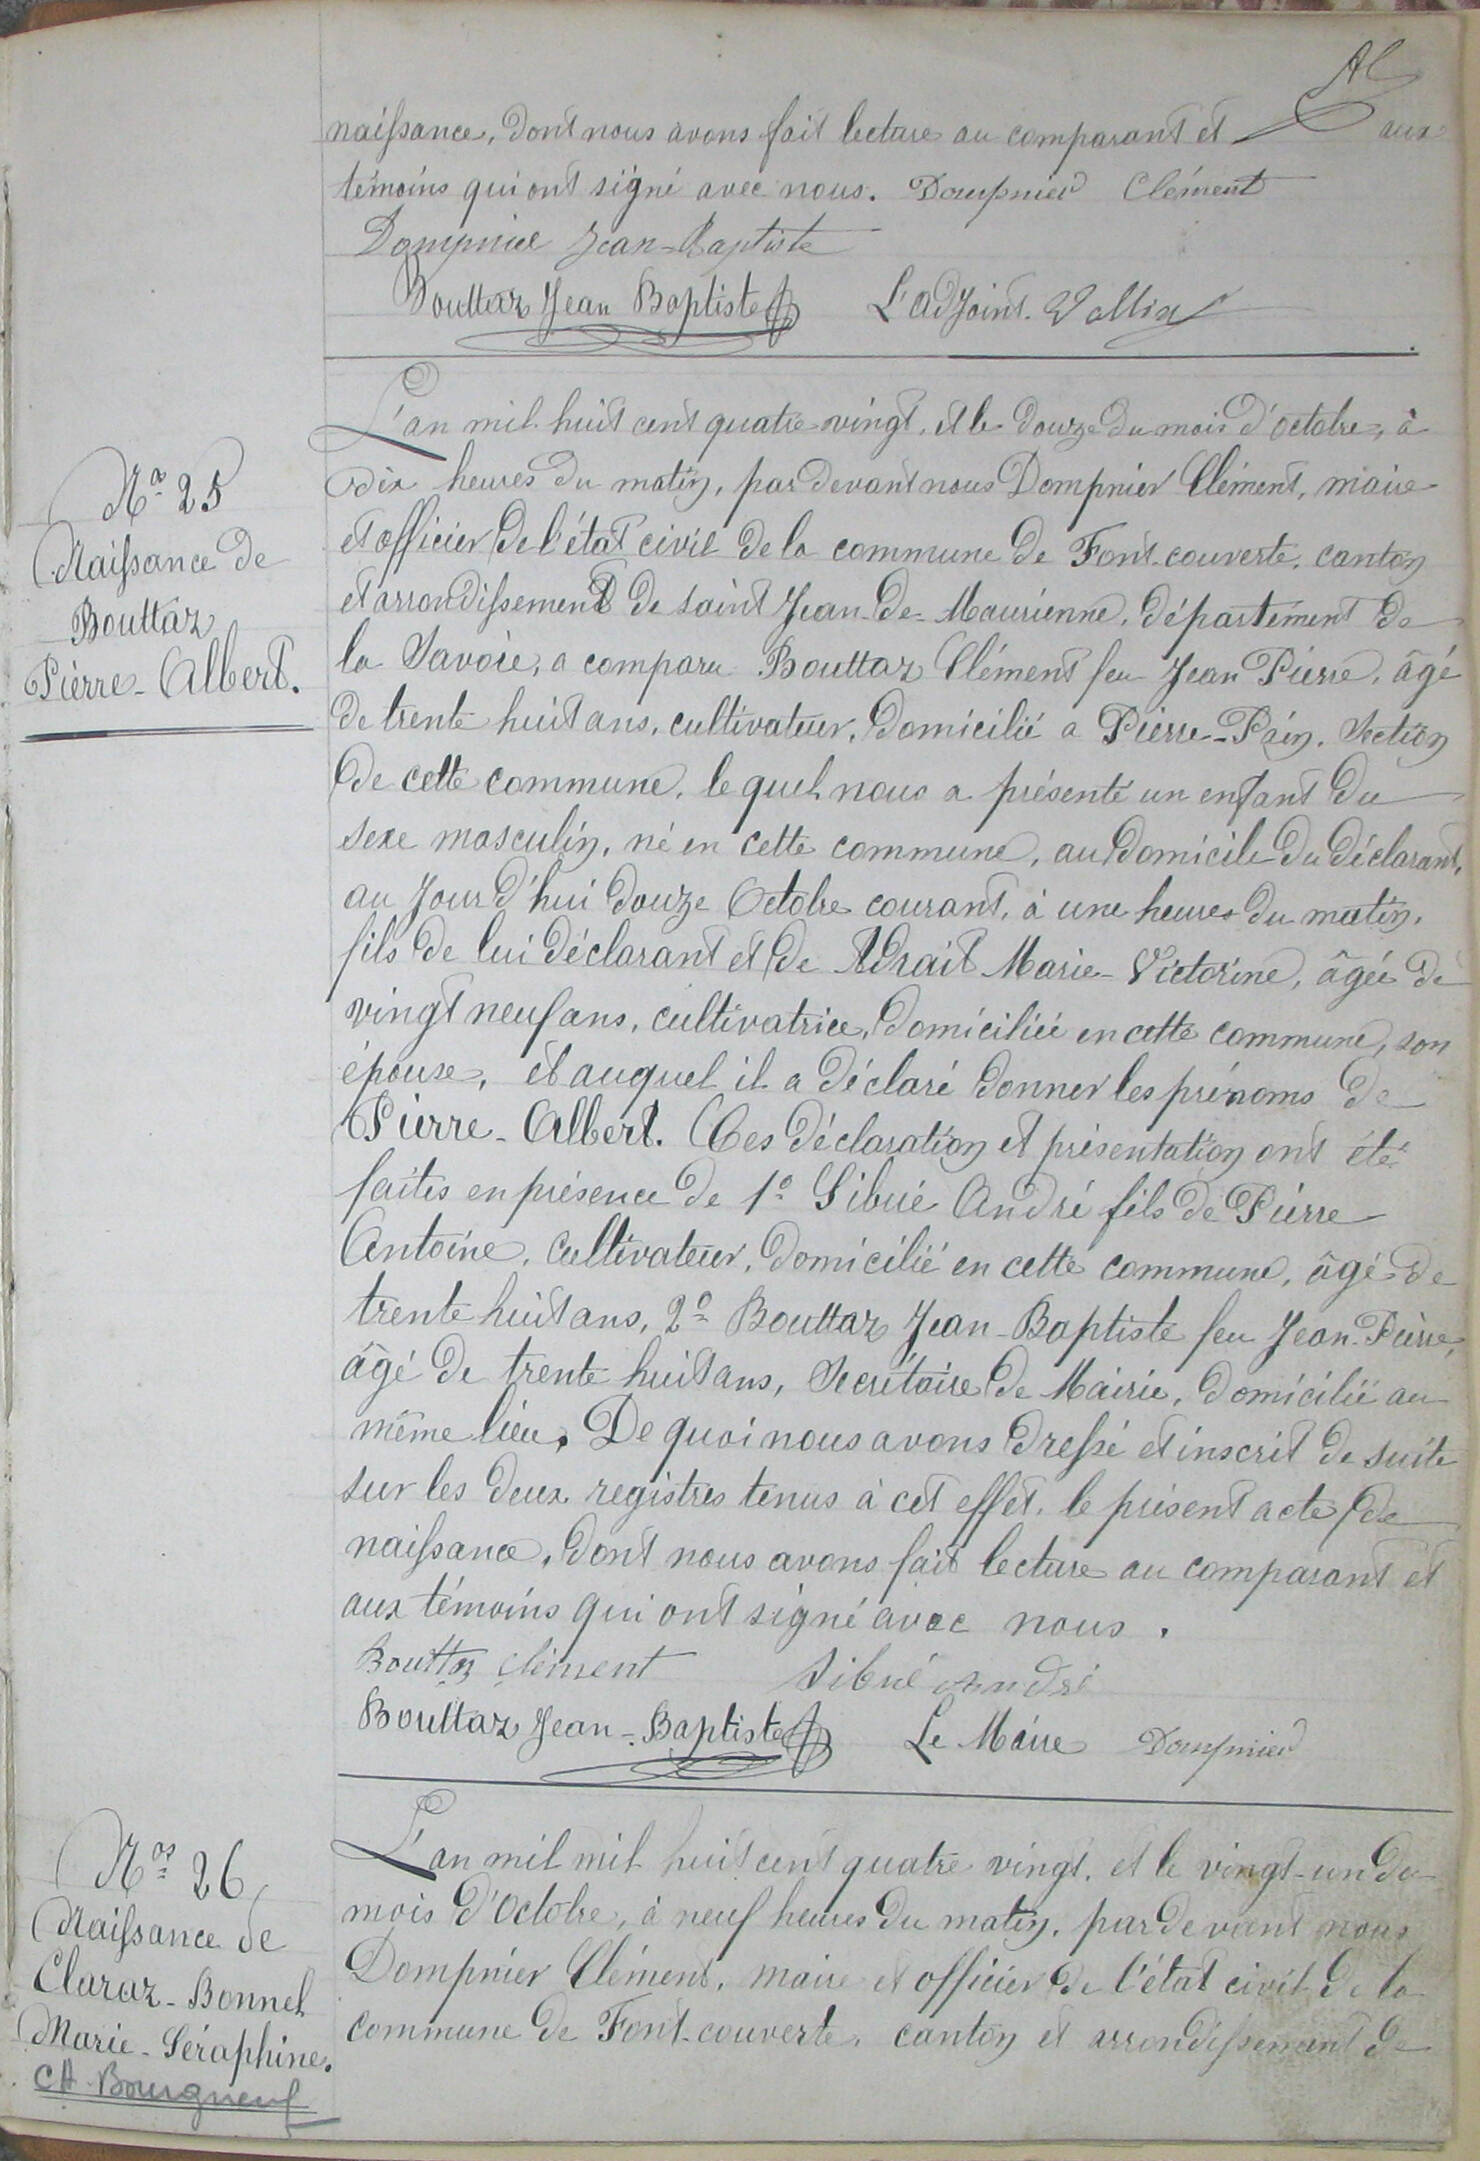 naissance, dont nous avons fait lecture au comparant et aux
témoins qui ont signé avec nous. Dompnier Clément
Dompnier Jean-Baptiste
Bouttaz Jean Baptiste L'adjoint. Vallin
N° 25
Naissance de
Bouttaz
Pierre-Albert.
L'an mil huit cent quatre-vingt, et le douze du mois d'octobre, à
dix heures du matin, par devant nous Dompnier Clément, maire
et officier de l'état civil de la commune de Font-couverte, canton
et arrondissement de saint Jean-de-Maurienne, département de
la Savoie, a comparu Bouttaz Clément feu Jean Pierre, âgé
de trente huit ans, cultivateur, domicilié a Pierre-Pain, Section
de cette commune, le quel nous a présenté un enfant du
sexe masculin, né en cette commune, au domicile du déclarant,
au jour d'hui douze Octobre courant, à une heures du matin,
fils de lui déclarant et de Adrait Marie-Victorine, âgée de
vingt neuf ans, cultivatrice, domiciliée en cette commune, son
épouse, et auquel il a déclaré donner les prénoms de
Pierre-Albert. Ces déclaration et présentation ont été
faites en présence de 1° Sibué André fils de Pierre
Antoine, cultivateur, domicilié en cette commune, âgé de
trente huit ans, 2° Bouttaz Jean-Baptiste feu Jean-Pierre,
âgé de trente huit ans, Secrétaire de Mairie, domicilié au
même lieu. De quoi nous avons dressé et inscrit de suite
sur les deux registres tenus à cet effet, le présent acte de
naissance, dont nous avons fait lecture au comparant et
aux témoins qui ont signé avec nous.
Bouttaz Clément Sibué André
Bouttaz Jean-Baptiste Le Maire Dompnier
N° 26
Naissance de
Claraz-Bonnel
Marie-Séraphine.
CH. Bourgneuf
L'an mil mil huit cent quatre vingt, et le vingt-un du
mois d'Octobre, à neuf heures du matin, par devant nous
Dompnier Clément, maire et officier de l'état civil de la
commune de Font-couverte, canton et arrondissement de